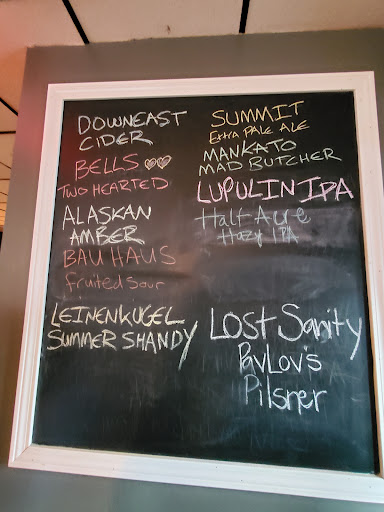 DOWNEAST
CIDER
BELLS ♡♡
TWO HEARTED
ALASKAN
AMBER
BAUHAUS
fruited sour
LEINENKUGEL
SUMMER SHANDY
SUMMIT
EXtrA PALE ALE
MANKATO
MAD BUTCHER
LUPULIN IPA
Half Acre
Hazy IPA
LOST SANity
PAVLOV'S
PilsNer